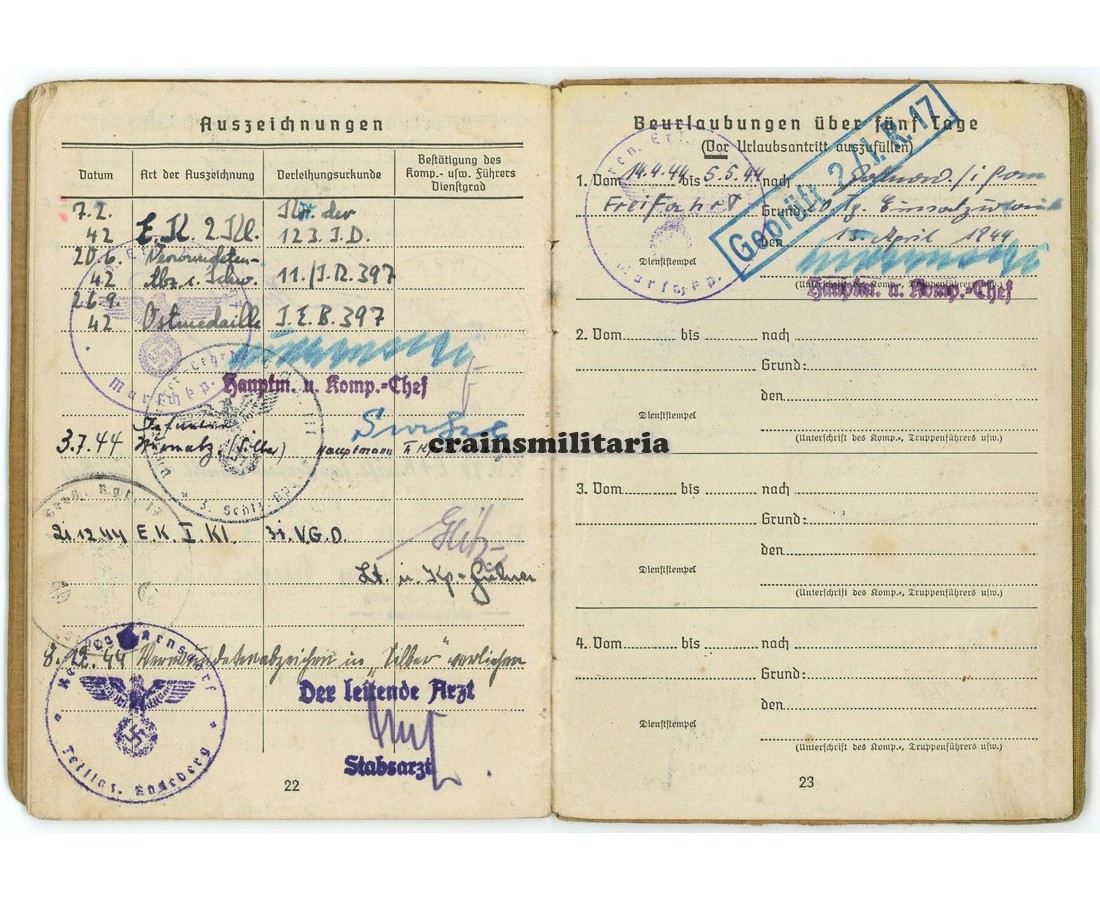 Auszeichnungen
Datum
Art der Auszeichnung
Verleihungsurkunde
Bestätigung des
Komp.- usw. Führers
Dienstgrad
7.2.
42
E.K. 2.Kl.
der
123. I.D.
20.6.
42
Verwundeten-
Abz. i. Schw.
11./I.R. 397
26.9.
42
Ostmedaille
I.E.B. 397
Hauptm. u. Komp.-Chef
3.7.44
(Silber)
Hauptmann
crainsmilitaria
E.K. I. Kl.
V.G.D.
Lt. u. Kp.-Führer
8.12.44 Verwundetenabzeichen in "Silber" verliehen
Der leitende Arzt
Stabsarzt
22
Beurlaubungen über fünf Tage
(Vor Urlaubsantritt auszufüllen)
Geprüft 2./I.R. 17
1. Vom 14.4.44 bis 5.5.44 nach
Freifahrt
Grund: 20 Tg.
den 13. April 1944
Dienststempel
(Unterschrift des Komp.-, Truppenführers usw.)
Hauptm. u. Komp.-Chef
2. Vom bis nach
Grund:
den
Dienststempel
(Unterschrift des Komp., Truppenführers usw.)
3. Vom bis nach
Grund:
den
Dienststempel
(Unterschrift des Komp.-, Truppenführers usw.)
4. Vom bis nach
Grund:
den
Dienststempel
(Unterschrift des Komp.-, Truppenführers usw.)
23